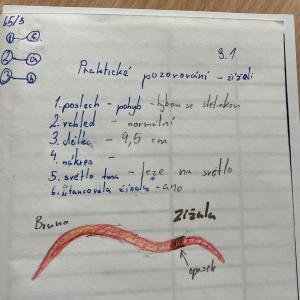 65/3
1 - c
2 - a
3 - b
9.1
Praktické pozorování - žížali
1. poslech - pohyb - hýbou se
2. vzhled - normální
3. délka - 9,5 cm
4. nákres -
5. světlo tma - leze na světlo
6. žížala - ano
Bruno
Žížala
opasek